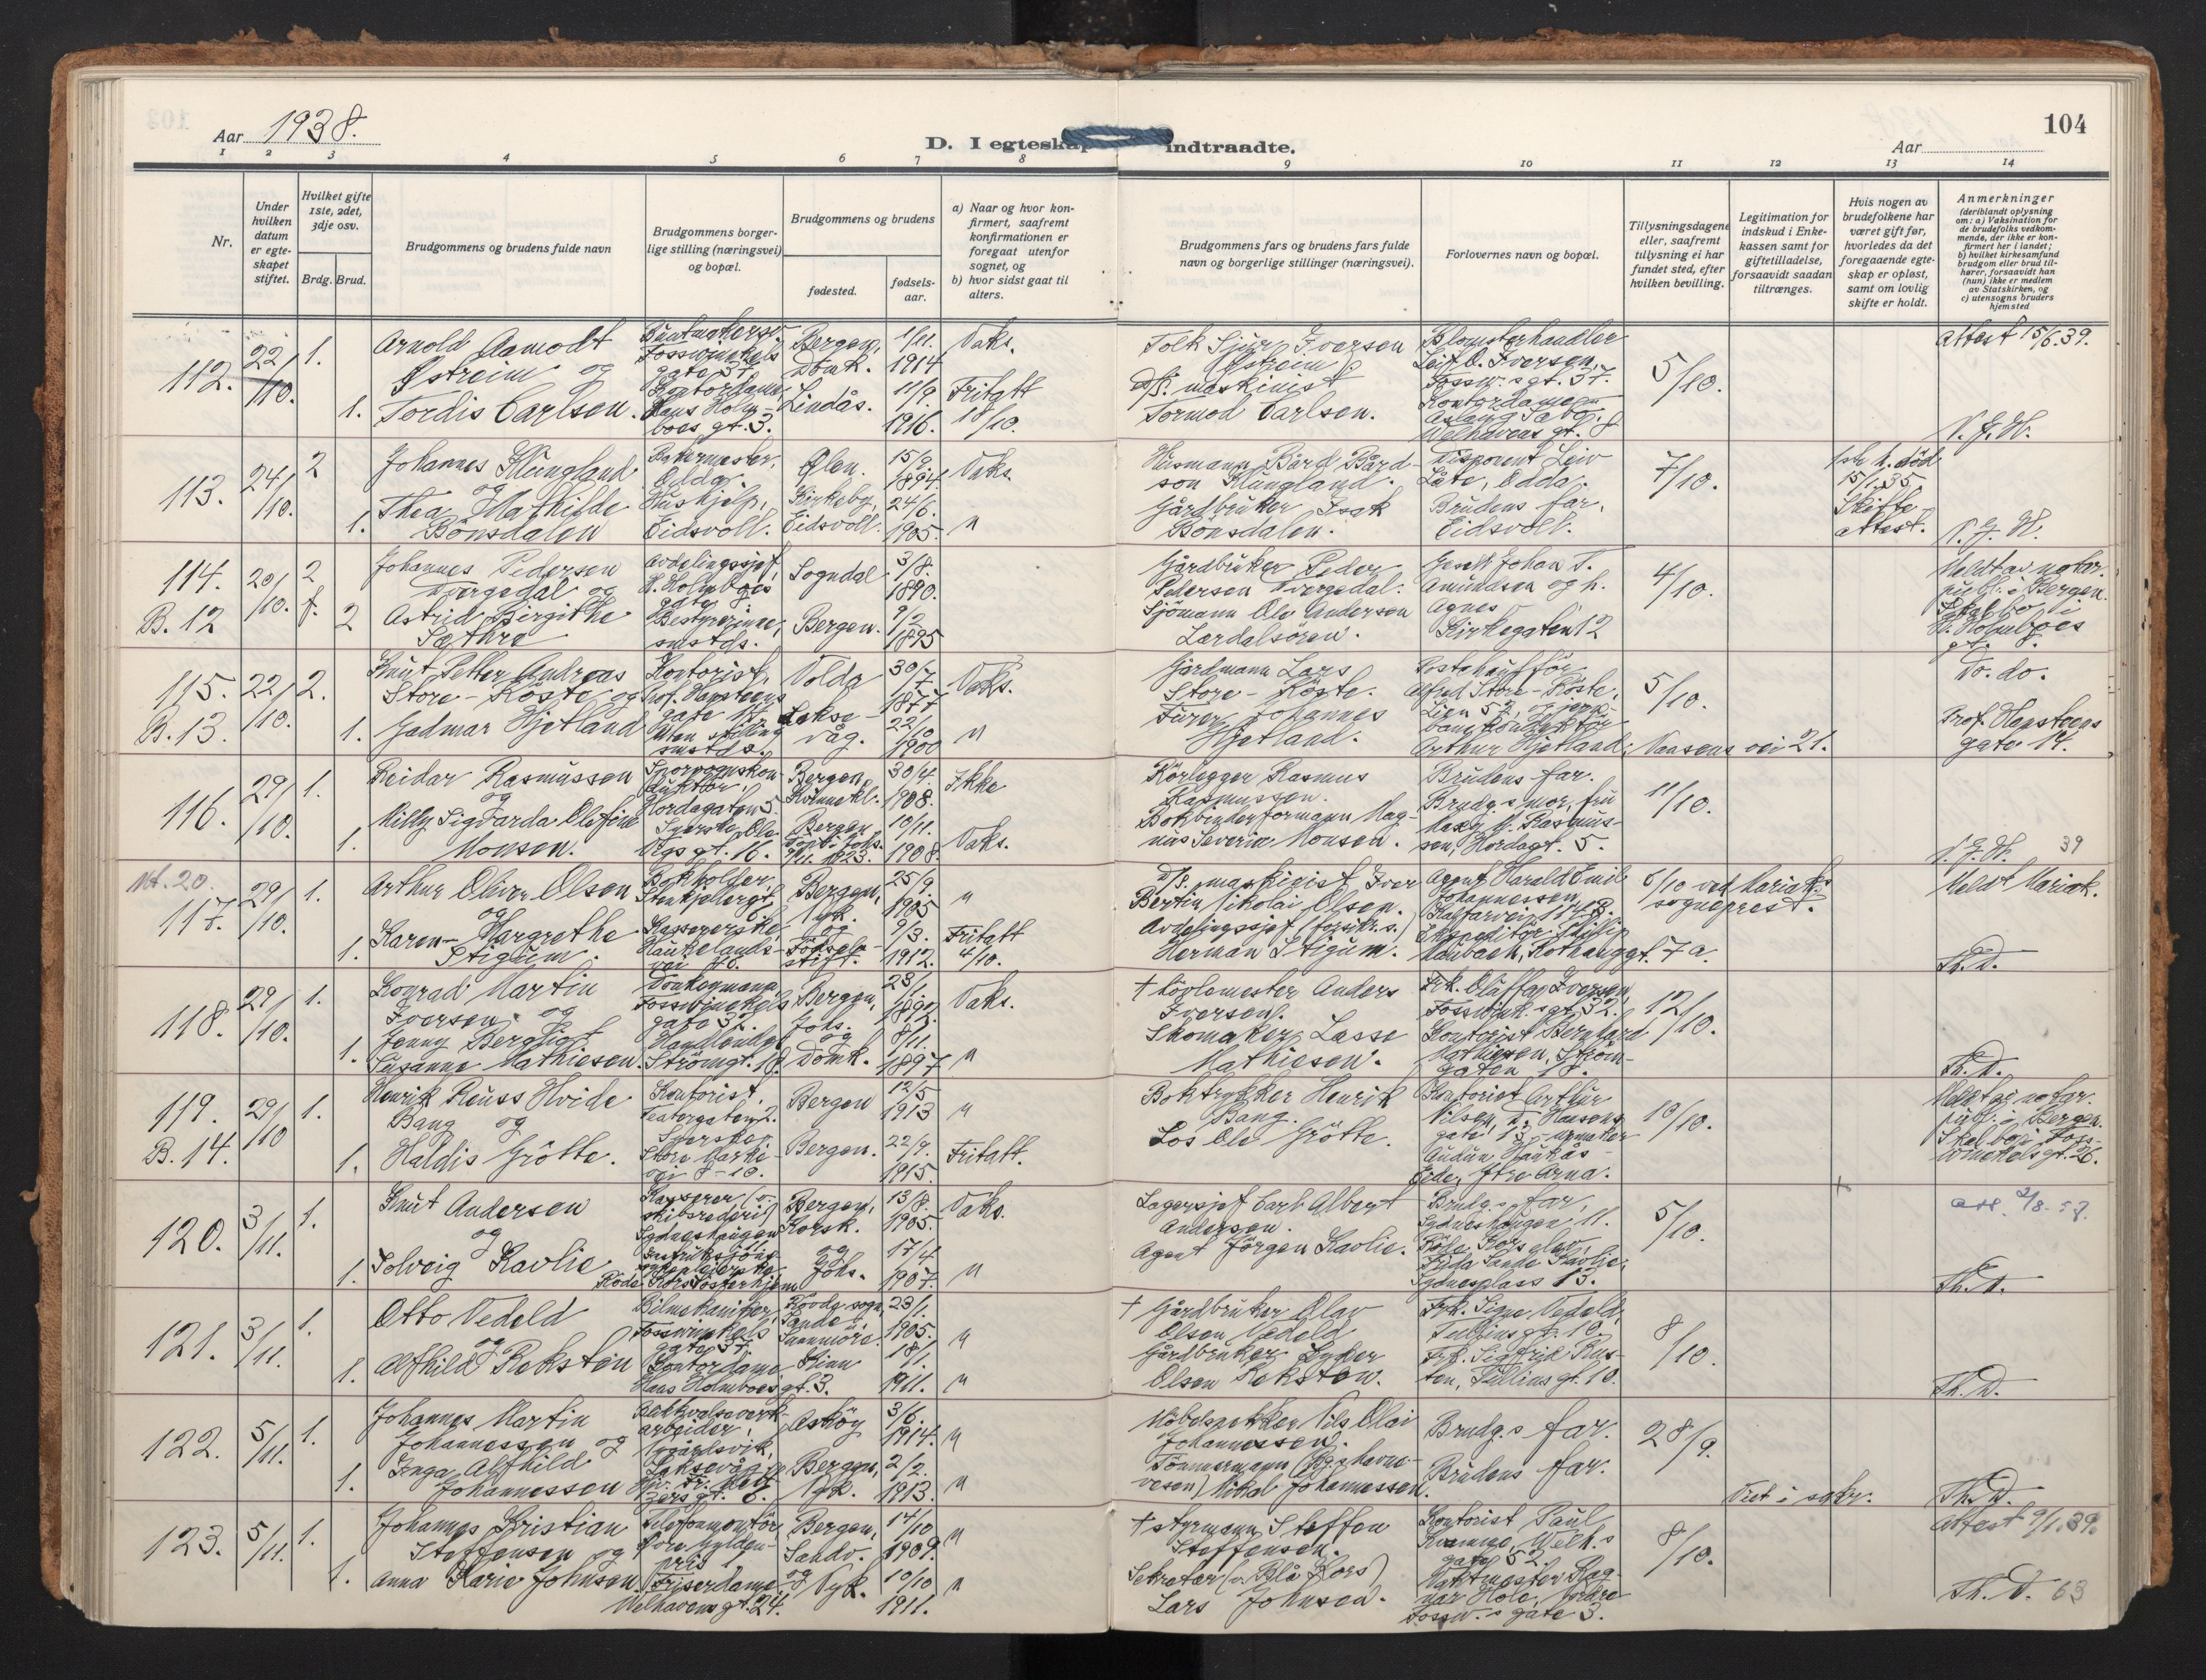 103
Aar 1938.
D. I egteskap indtraadte.
Aar
104
1 2 3 4 5 6 7 8 9 10 11 12 13 14
Nr.
Under hvilken datum er egteskapet stiftet.
Hvilket gifte 1ste, 2det, 3dje osv.
Brdg. Brud.
Brudgommens og brudens fulde navn
Brudgommens borgerlige stilling (næringsvei) og bopæl.
Brudgommens og brudens
fødested.
fødselsaar.
a) Naar og hvor konfirmert, saafremt konfirmationen er foregaat utenfor sognet, og
b) hvor sidst gaat til alters.
Brudgommens fars og brudens fars fulde navn og borgerlige stillinger (næringsvei).
Forlovernes navn og bopæl.
Tillysningsdagene eller, saafremt tillysning ei har fundet sted, efter hvilken bevilling.
Legitimation for indskud i Enkekassen samt for giftetilladelse, forsaavidt saadan tiltrænges.
Hvis nogen av brudefolkene har været gift før, hvorledes da det foregaaende egteskap er opløst, samt om lovlig skifte er holdt.
Anmerkninger
(deriblandt oplysning om: a) Vaksination for de brudefolks vedkommende, der ikke er konfirmert her i landet; b) hvilket kirkesamfund brudgom eller brud tilhører, forsaavidt han (hun) ikke er medlem av Statskirken, og c) utensogns bruders hjemsted
112. 22/10. 1. 1.
Arnold Aamodt
Østreim og
Tordis Carlsen.
Buntmakersv.
Fosswinckels
gate 37.
Kontordame,
Hans Holmboes gt. 3.
Bergen,
Domk.
Lindås.
1/11. 1914
11/9. 1916.
Vaks.
Fritatt
10/10.
Tolk Sjur Iversen
Østreim
D/S. maskinist
Tormod Carlsen.
Blomsterhandler
Leif O. Iversen,
Fossw.s gt. 37.
Kontordame
Welhavens gt. 8
5/10.
Attest 15/6.39.
N. J. H.
113. 24/10. 2 1.
Johannes Klungland
og
Thea Mathilde
Bönsdalen
Bakermester,
Odda.
Hushjelp,
Eidsvoll.
Ølen.
Kirkeby,
Eidsvoll.
15/9 1894.
24/6. 1905.
Vaks.
"
Husmann Bård Bårdson Klungland.
Gårdbruker Isak
Bönsdalen.
Disponent Leiv
Låte, Odda.
Brudens far,
Eidsvoll.
7/10.
1ste h. død
15/1.35.
Skifteattest.
N. J. H.
114. B. 12
20/10. 2 f. 2
Johannes Pedersen
Tvergedal og
Astrid Birgithe
Sæthre
Avdelingssjef,
H. Holmboes
gate 8
Bestyrerinne,
smstds.
Sogndal
Bergen.
3/8. 1890.
9/2 1895
Gårdbruker Peder
Pedersen Tvergedal.
Sjömann Ole Andersen
Lærdalsören.
Johan T.
Amundsen og h.
Agnes
Kirkegaten 12
4/10.
Meldt av notar.
publ. i Bergen.
Skal bo i
H. Holmboes
gt. 8.
115. B. 13.
22/10. 2. 1.
Knut Petter Andreas
Store-Köste og
Gadmar Hjetland
Kontorist,
Prof. Hansteens
gate 14,
Uten stilling
smstds.
Volda
Laksevåg.
30/7 1877
22/10 1900
Vaks.
"
Gårdmann Lars
Store-Köste.
Johannes
Hjetland.
Alfred Store-Köste,
Lien 52,
Arthur Hjetland, Vaasens vei 21.
5/10.
Do. do.
Prof. Hansteens
gate 14.
116. 29/10. 1. 1.
Reidar Rasmussen
og
Milly Sigvarda Olefine
Monsen.
Sporvognskonduktör,
Hordagaten 5
Syerske, Ole
Vigs gt. 16.
Bergen,
Bergen
Döpt i Johs.
1923.
30/4. 1908.
10/11. 1908.
Ikke
Vaks.
Körlegger Rasmus
Rasmussen.
Bokbinderformann Magnus Severin Monsen.
Brudens far.
Brudg.s mor, fru
Rasmussen, Hordagt. 5.
11/10.
N. J. H. 39
Nt. 20.
117. 29/10. 1. 1.
Arthur Oliver Olsen
og
Karen-Margrethe
Stigum.
Bokholder,
Kassererske,
Haukelandsvei 40.
Bergen,
Nyk.
og
Födselsstift.
25/9. 1905
9/3. 1912.
"
Fritatt
4/10.
D/S. maskinist Iver
Bertin Nikolai Olsen.
Avdelingssjef (forsikr.s.)
Herman Stigum.
Agent Harald Emil
Johannessen,
Kalfarvei
Ekspeditör Phillip
Maubach, Rothauggt. 7 a.
6/10 ved Mariak.s
sogneprest.
Meldt Mariak.
Th. D.
118. 29/10. 1. 1.
Konrad Martin
Iversen og
Jenny Bergliot
Susanne Mathiesen
Donkeymann,
Fosswinckels
gate 32.
Handlende,
Strömgt. 18.
Bergen,
Johs.
og
Domk.
23/1. 1892.
8/11. 1897
Vaks.
"
† Anders
Iversen.
Skomaker Lasse
Mathiesen.
Frk. Olaffa Iversen,
Fosswink.s gt. 32.
Kontorist Bernhard
Mathiesen, Strömgaten 18.
12/10.
Th. D.
119. B. 14.
29/10 1. 1.
Henrik Reuss Hvide
Bang og
Haldis Grötte.
Kontorist.
Teatergaten 2.
Syerske,
Store Markevei 8-10.
Bergen
Bergen.
12/5 1913
22/9. 1915.
"
Fritatt.
Boktrykker Henrik
Bang.
Los Ole Grötte.
Kontorist Arthur
Nilsen, D. Hansens
gate 13, urmaker
Audun Haukås
Eide, Ytre Arna.
10/10.
Meldt av notar.
publ. i Bergen.
Skal bo i Fosswinckelsgt. 26.
120. 3/11. 1. 1.
Knut Andersen
og
Solveig Kavlie
Kasserer (v.
skibsrederi)
Sydneshaugen
11.
Instruksjonssykepleierske,
Röde Kors Søsterhjem
Bergen,
Korsk.
og
Johs.
13/8. 1905.
17/4 1907.
Vaks.
"
Lagersjef Carl Albert
Andersen.
Agent Jörgen Kavlie.
Brudg.s far,
Sydneshaugen 11.
Röde Kors elev
Frida Sande Kavlie,
Sydnesplass 13.
5/10.
att. 2/8-57.
Th. D.
121. 3/11. 1. 1.
Otto Vedeld
og
Alfhild Reksten
Bilmekaniker,
Fosswinckels
gate 37.
Kontordame
Hans Holmboes gt. 3.
Sande
Sunnmöre.
Kinn
23/1. 1905.
18/1. 1911.
"
"
† Gårdbruker Olav
Olsen Vedeld
Gårdbruker
Olsen Reksten.
Frk. Signe Vedeld,
Tulliusgt. 10.
Frk. Sigfrid Rusten, Tulliusgt. 10.
8/10.
Th. D.
122. 5/11. 1. 1.
Johannes Martin
Johannessen og
Inga Alfhild
Johannessen
Blikkvalseverkarbeider,
Nygårdsvik,
Laksevåg,
Hjr. Fr. Meltzers gt. 6.
Askøy
Bergen,
Nyk.
3/6. 1914.
2/2. 1913.
"
"
Möbelpakker Nils Olai
Johannessen.
Tömmermann (Bg.s havnevesen) Johannessen.
Brudg.s far.
Brudens far.
28/9.
Viet i sakr.
Th. D.
123. 5/11. 1. 1.
Johannes Kristian
Steffensen og
Anna Marie Johnsen.
Telefonmontör,
Gyldenpris
Friserdame
Welhavens gt. 24.
Bergen,
Sandv.
og
Nyk.
14/10 1909.
10/10 1911.
"
"
† Styrmann Steffen
Steffensen.
Sekretær (v. Blå Kors)
Lars Johnsen.
Kontorist Paul
Kvamme, Welh.s
gate 52.
Vaktmester Ragnar Hole, Nordre
Fossw.s gate 3.
8/10.
Attest 9/1.39.
Th. D. 63